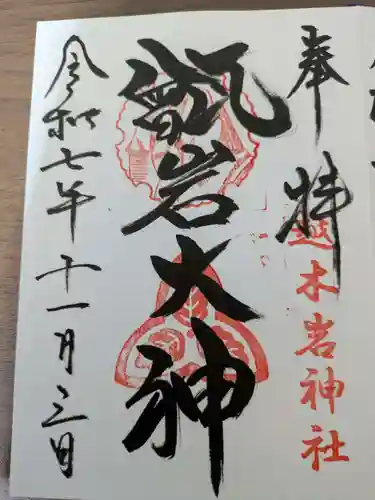 奉拝
越木岩神社
甑岩大神
令和七年十一月三日